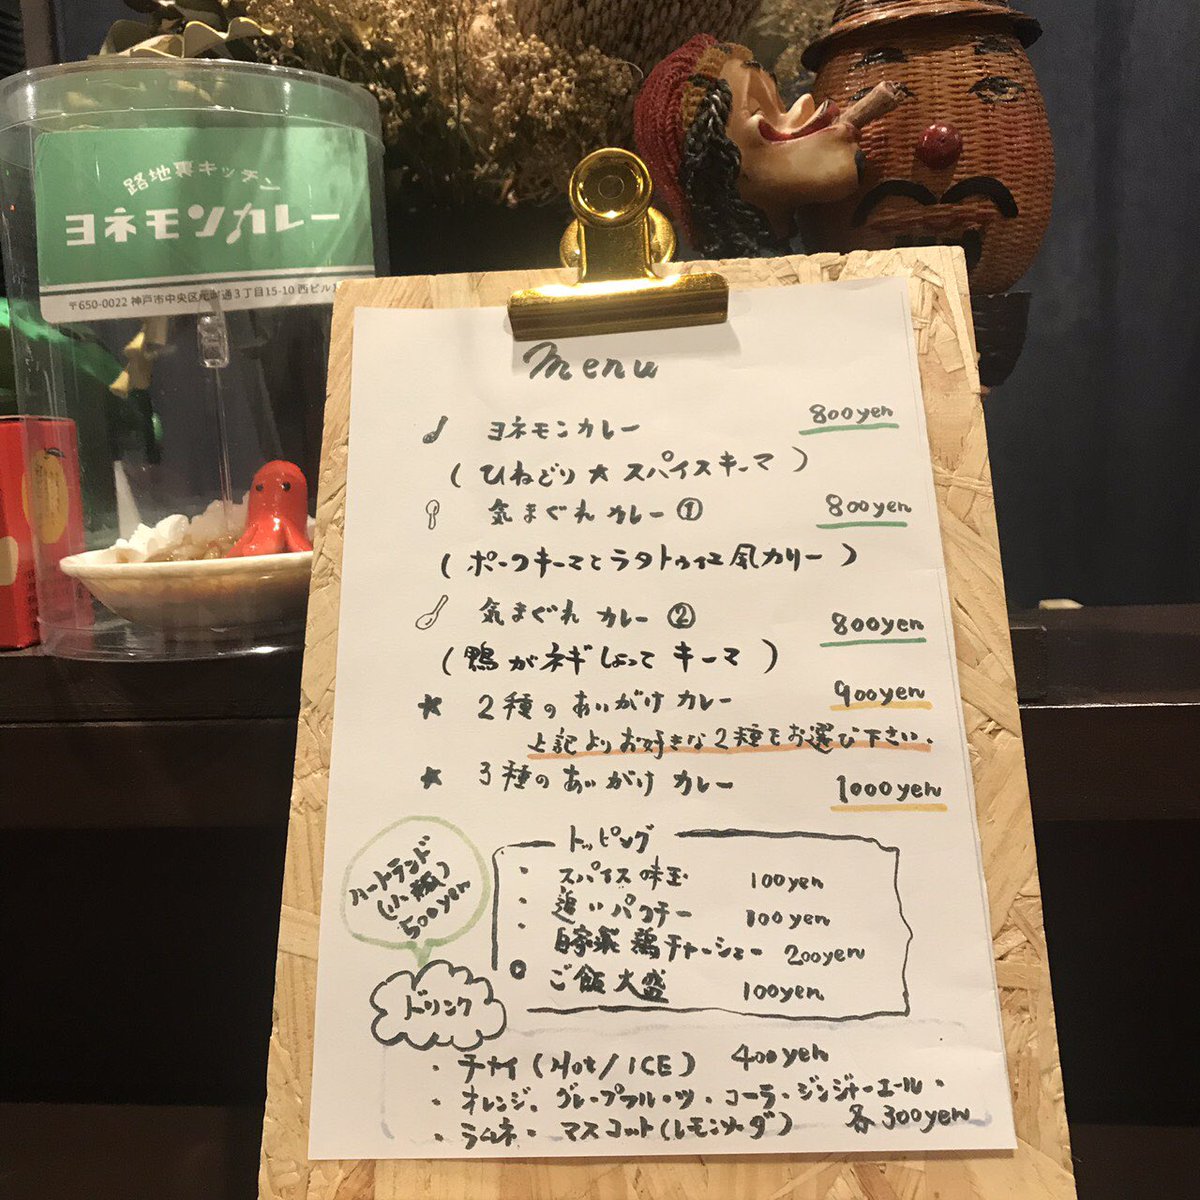 路地裏キッチン
ヨネモンカレー
〒650-0022 神戸市中央区元町通3丁目15-10 西ビル
Menu
ヨネモンカレー 800yen
(ひねどり★スパイスキーマ)
気まぐれカレー① 800yen
(ポークキーマとラタトゥイユ風カリー)
気まぐれカレー② 800yen
(鴨がネギしょってキーマ)
★ 2種のあいがけカレー 900yen
上記よりお好きな2種をお選び下さい.
★ 3種のあいがけカレー 1000yen
トッピング
・スパイス味玉 100yen
・追いパクチー 100yen
・自家製鶏チャーシュー 200yen
○ご飯大盛 100yen
ハートランド
(小瓶)
500yen
ドリンク
・チャイ(Hot/ICE) 400yen
・オレンジ、グレープフルーツ・コーラ・ジンジャーエール・
・ラムネ・マスコット(レモンソーダ) 各300yen